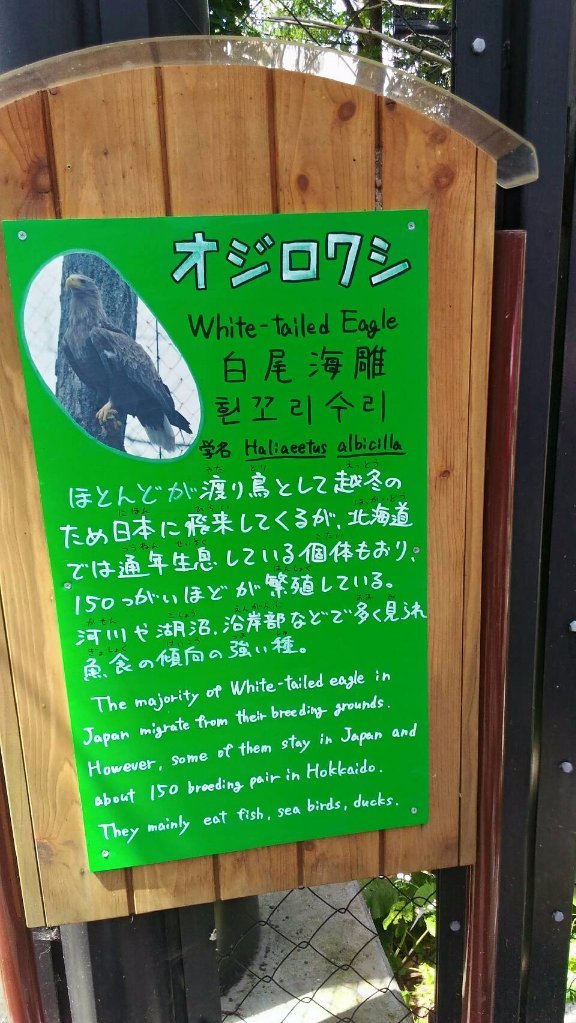 オジロワシ
White-tailed Eagle
白尾海雕
흰꼬리수리
学名 Haliaeetus albicilla
ほとんどが渡り鳥として越冬の
ため日本に飛来してくるが、北海道
では通年生息している個体もおり、
150つがいほどが繁殖している。
河川や湖沼、沿岸部などで多く見られ
魚食の傾向の強い種。
The majority of White-tailed eagle in
Japan migrate from their breeding grounds.
However, some of them stay in Japan and
about 150 breeding pair in Hokkaido.
They mainly eat fish, sea birds, ducks.